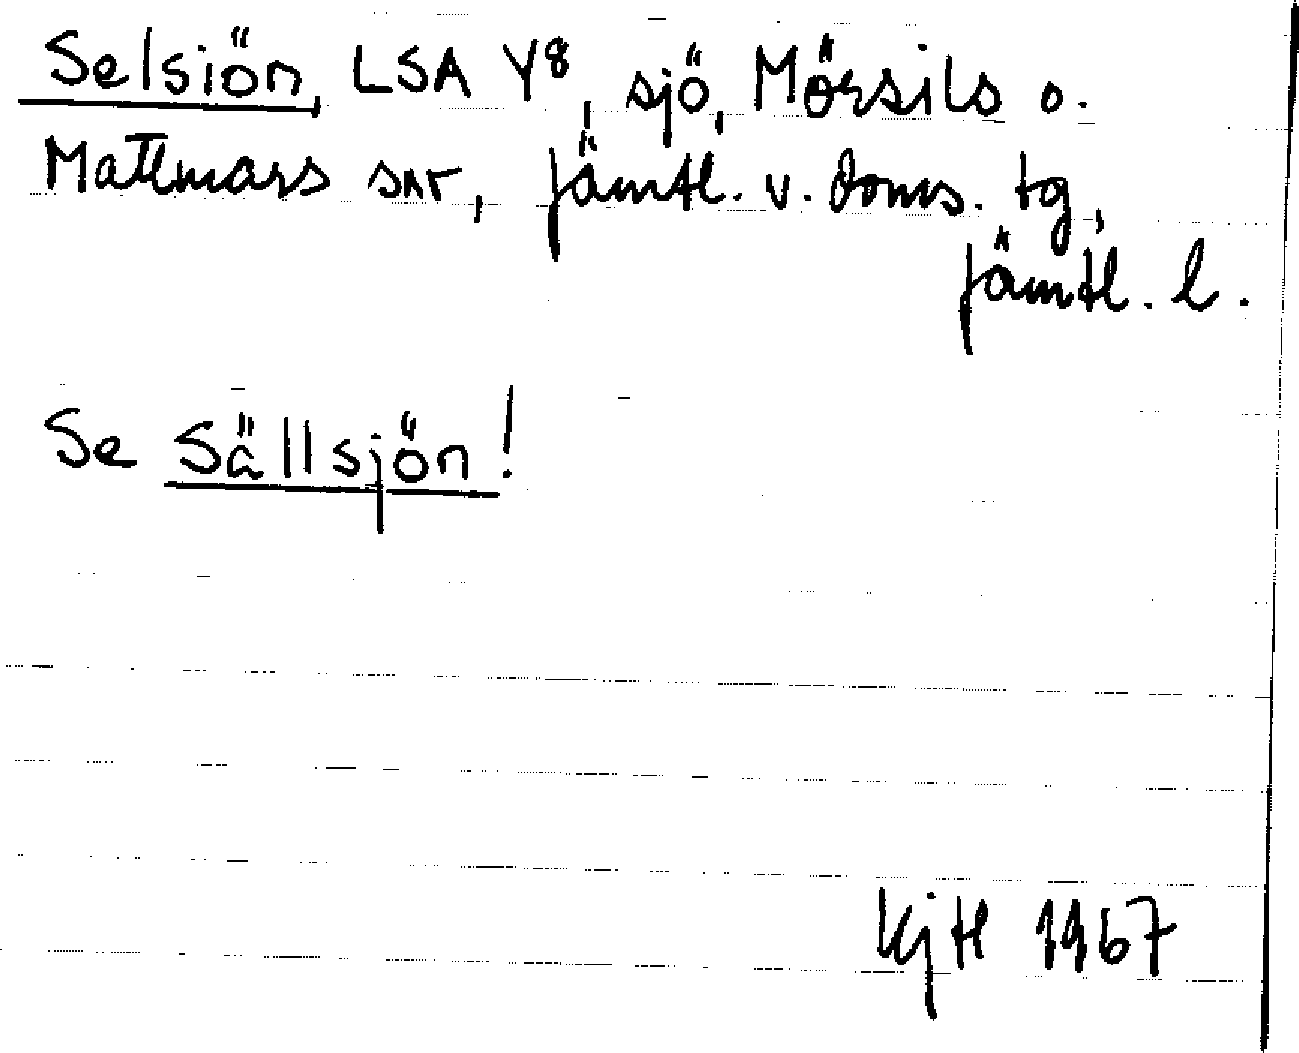 Selsiön, LSA Y8, sjö, Mörsils o.
Mattmars snr, Jämtl. v. doms. tg,
Jämtl. l.
Se Sällsjön!
KjH 1967